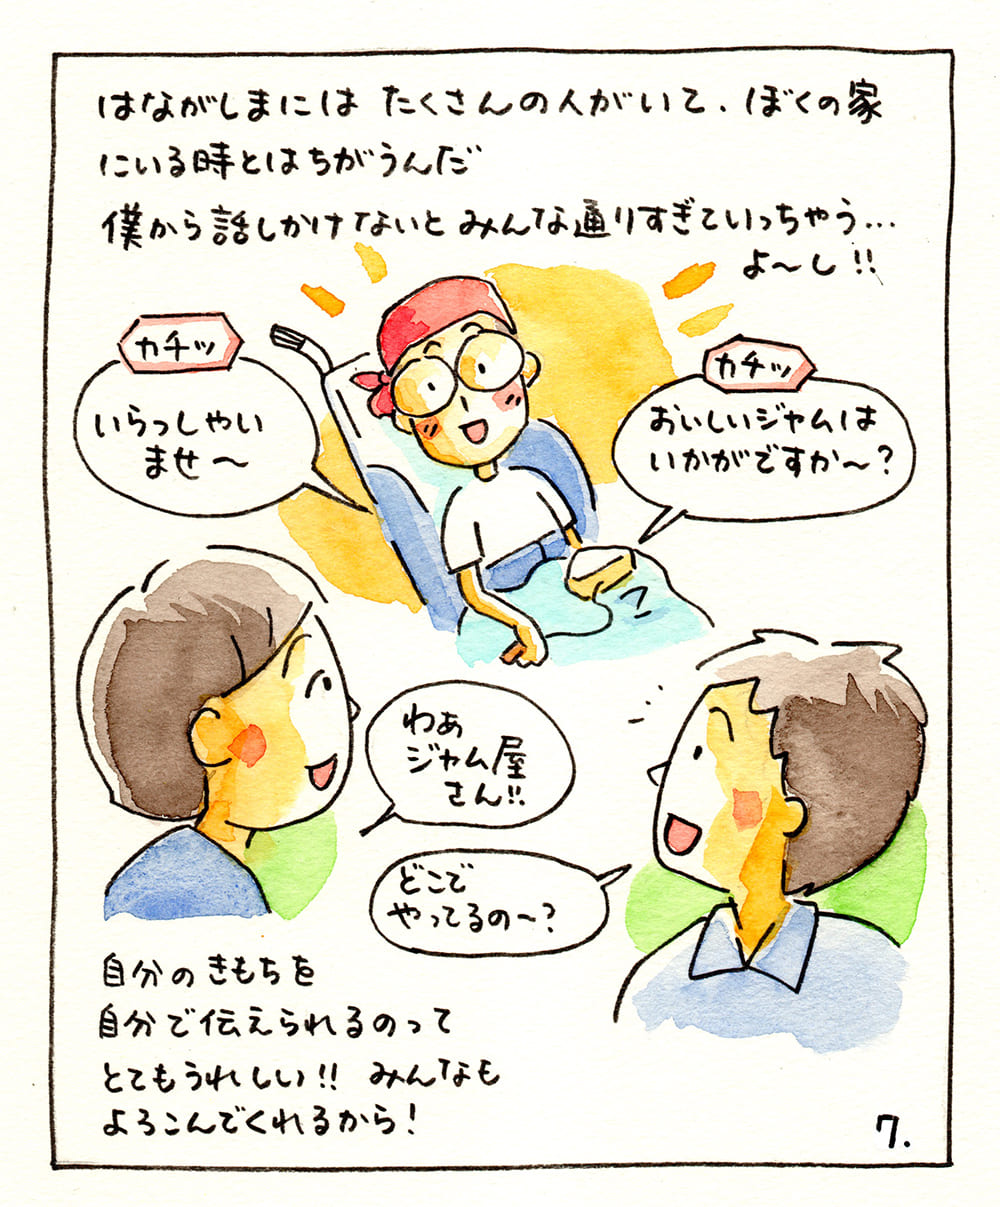 はながしまには たくさんの人がいて、ぼくの家
にいる時とはちがうんだ
僕から話しかけないと みんな通りすぎていっちゃう…
よ〜し!!
カチッ
いらっしゃい
ませ〜
カチッ
おいしいジャムは
いかがですか〜?
わぁ
ジャム屋
さん!!
どこで
やってるの〜?
自分のきもちを
自分で伝えられるのって
とてもうれしい!! みんなも
よろこんでくれるから!
7.